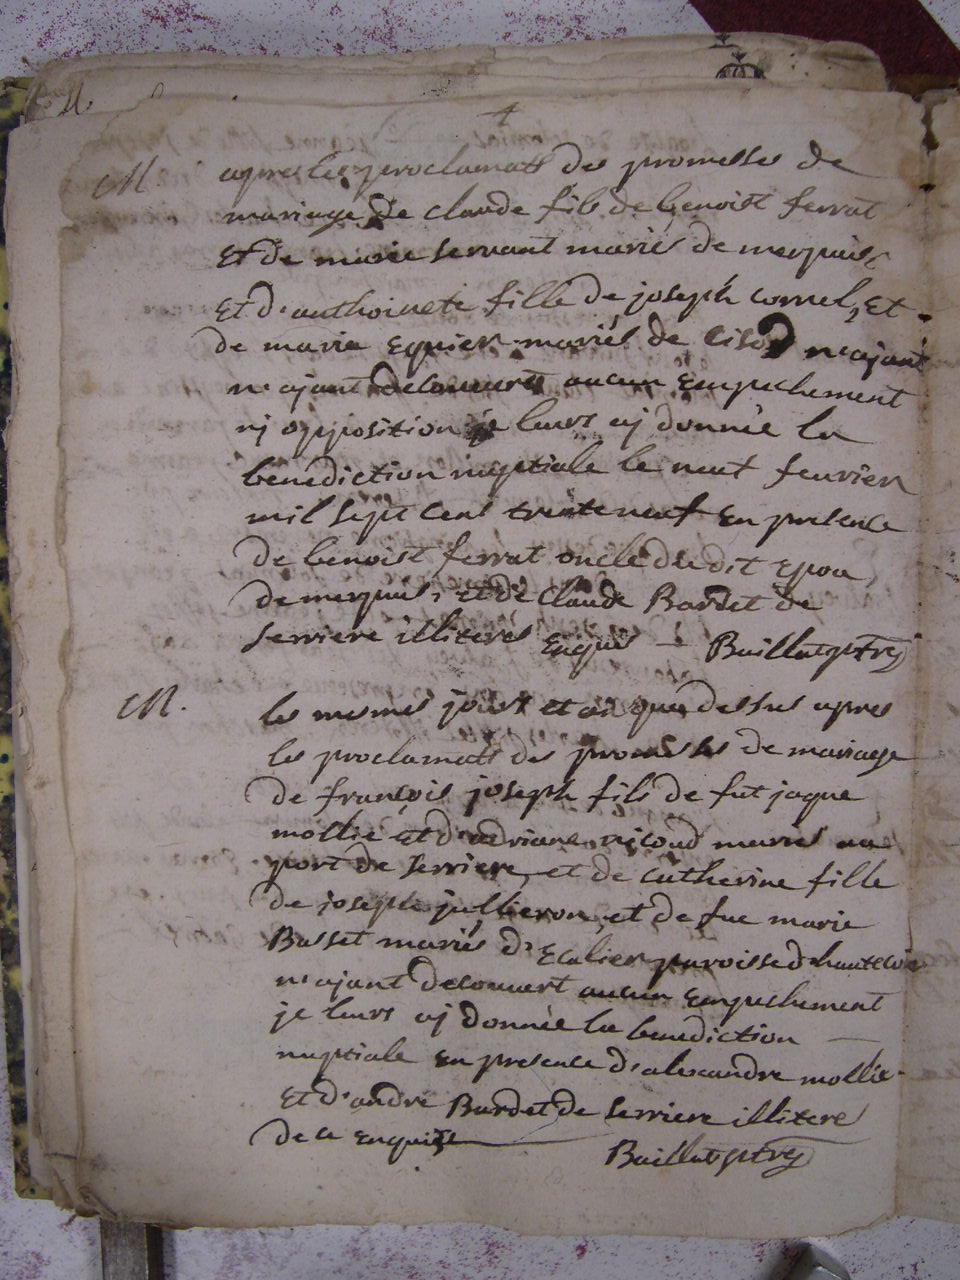 4
M. apres les proclamats des promesses de
mariage de claude fils de benoist ferrat
et de marie servant mariés de merpuis
et d'anthoinete fille de joseph cornel, et
de marie Equier mariés de Cisod n'ajant
n'ajant decouverts aucun empechement
nj opposition je leurs aj donnée la
benediction nuptiale le neuf feuvrier
mil sept cens trente neuf en presence
de benoist ferrat oncle du dit epou
de merpuis, et de Claude Bardet de
serriere illiterés enquis — Baillat ptre
M. les mesmes jours et an que dessus apres
les proclamats des promesses de mariage
de francois joseph fils de fut jaque
mollie et d'adriane ricoud mariés au
port de serriere, et de catherine fille
de joseph jullieron, et de fue marie
Basset mariés d'Ecalier paroisse d'hautecour
n'ajant decouvert aucun empechement
je leurs aj donnée la benediction —
nuptiale en presence d'alexandre mollie
et d'andre Bardet de serriere illitere
de ce enquis
Baillat ptre